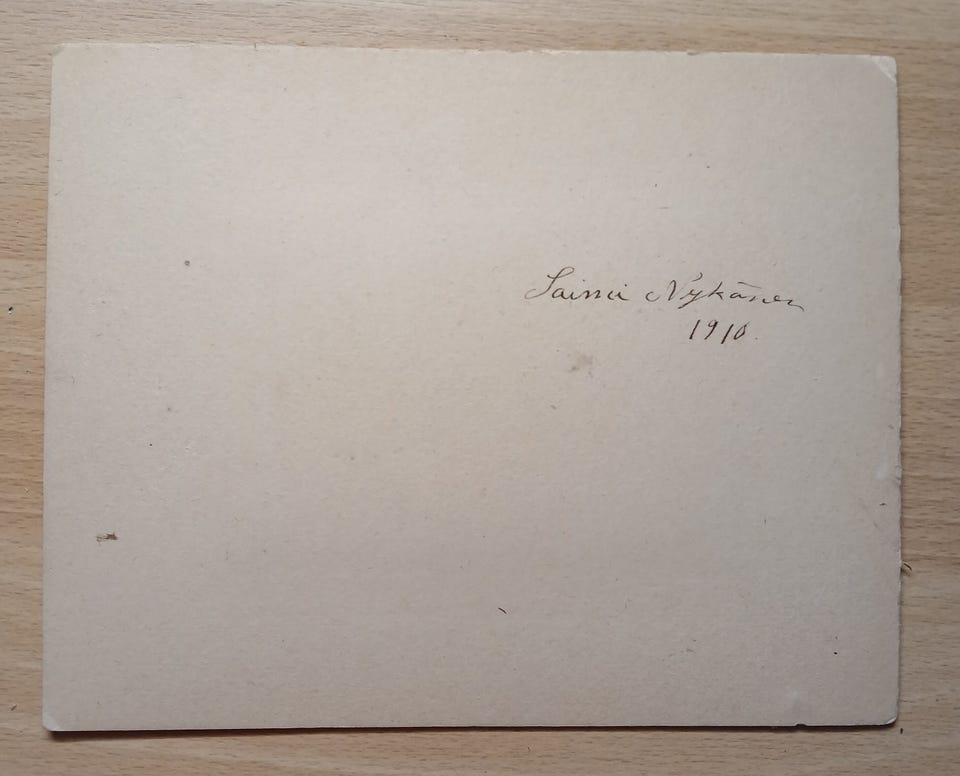 Saimi Nykänen
1910.